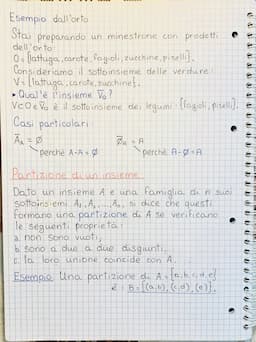 Esempio dall'orto
Stai preparando un minestrone con prodotti
dell'orto:
O={lattuga, carote, fagioli, zucchine, piselli}.
Consideriamo il sottoinsieme delle verdure:
V={lattuga, carote, zucchine}.
• Qual è l'insieme V̅o?
V⊂O e V̅o è il sottoinsieme dei legumi: {fagioli, piselli}.
Casi particolari:
A̅A = Ø    Ø̅A = A
perché A-A=Ø    perché A-Ø=A
Partizione di un insieme
Dato un insieme A e una famiglia di n suoi
sottoinsiemi A₁, A₂,..., Aₙ, si dice che questi
formano una partizione di A se verificano
le seguenti proprietà:
a. non sono vuoti;
b. sono a due a due disgiunti;
c. la loro unione coincide con A.
Esempio: Una partizione di A={a,b,c,d,e}
è: B={(a,b),(c,d),(e)}.